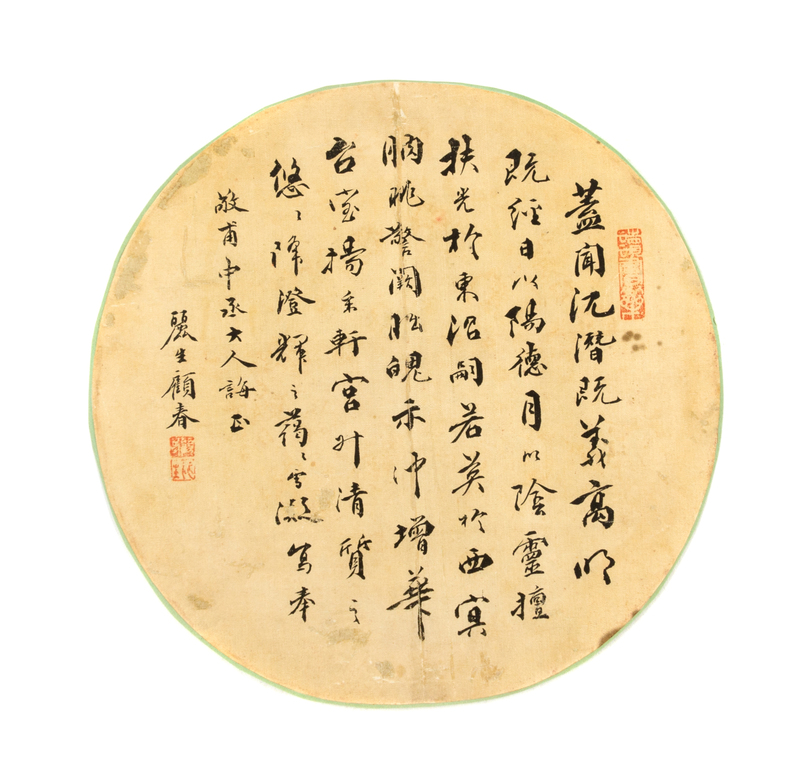 蓋聞沈潛既義高明
既經日以陽德月以陰靈擅
扶光於東沼嗣若英於西冥
朒朓警闕朏魄示沖增華
台室揚采軒宮升清質之
悠〻降澄輝之藹〻雪寫奉
敬甫中丞大人誨正
麗生顧春